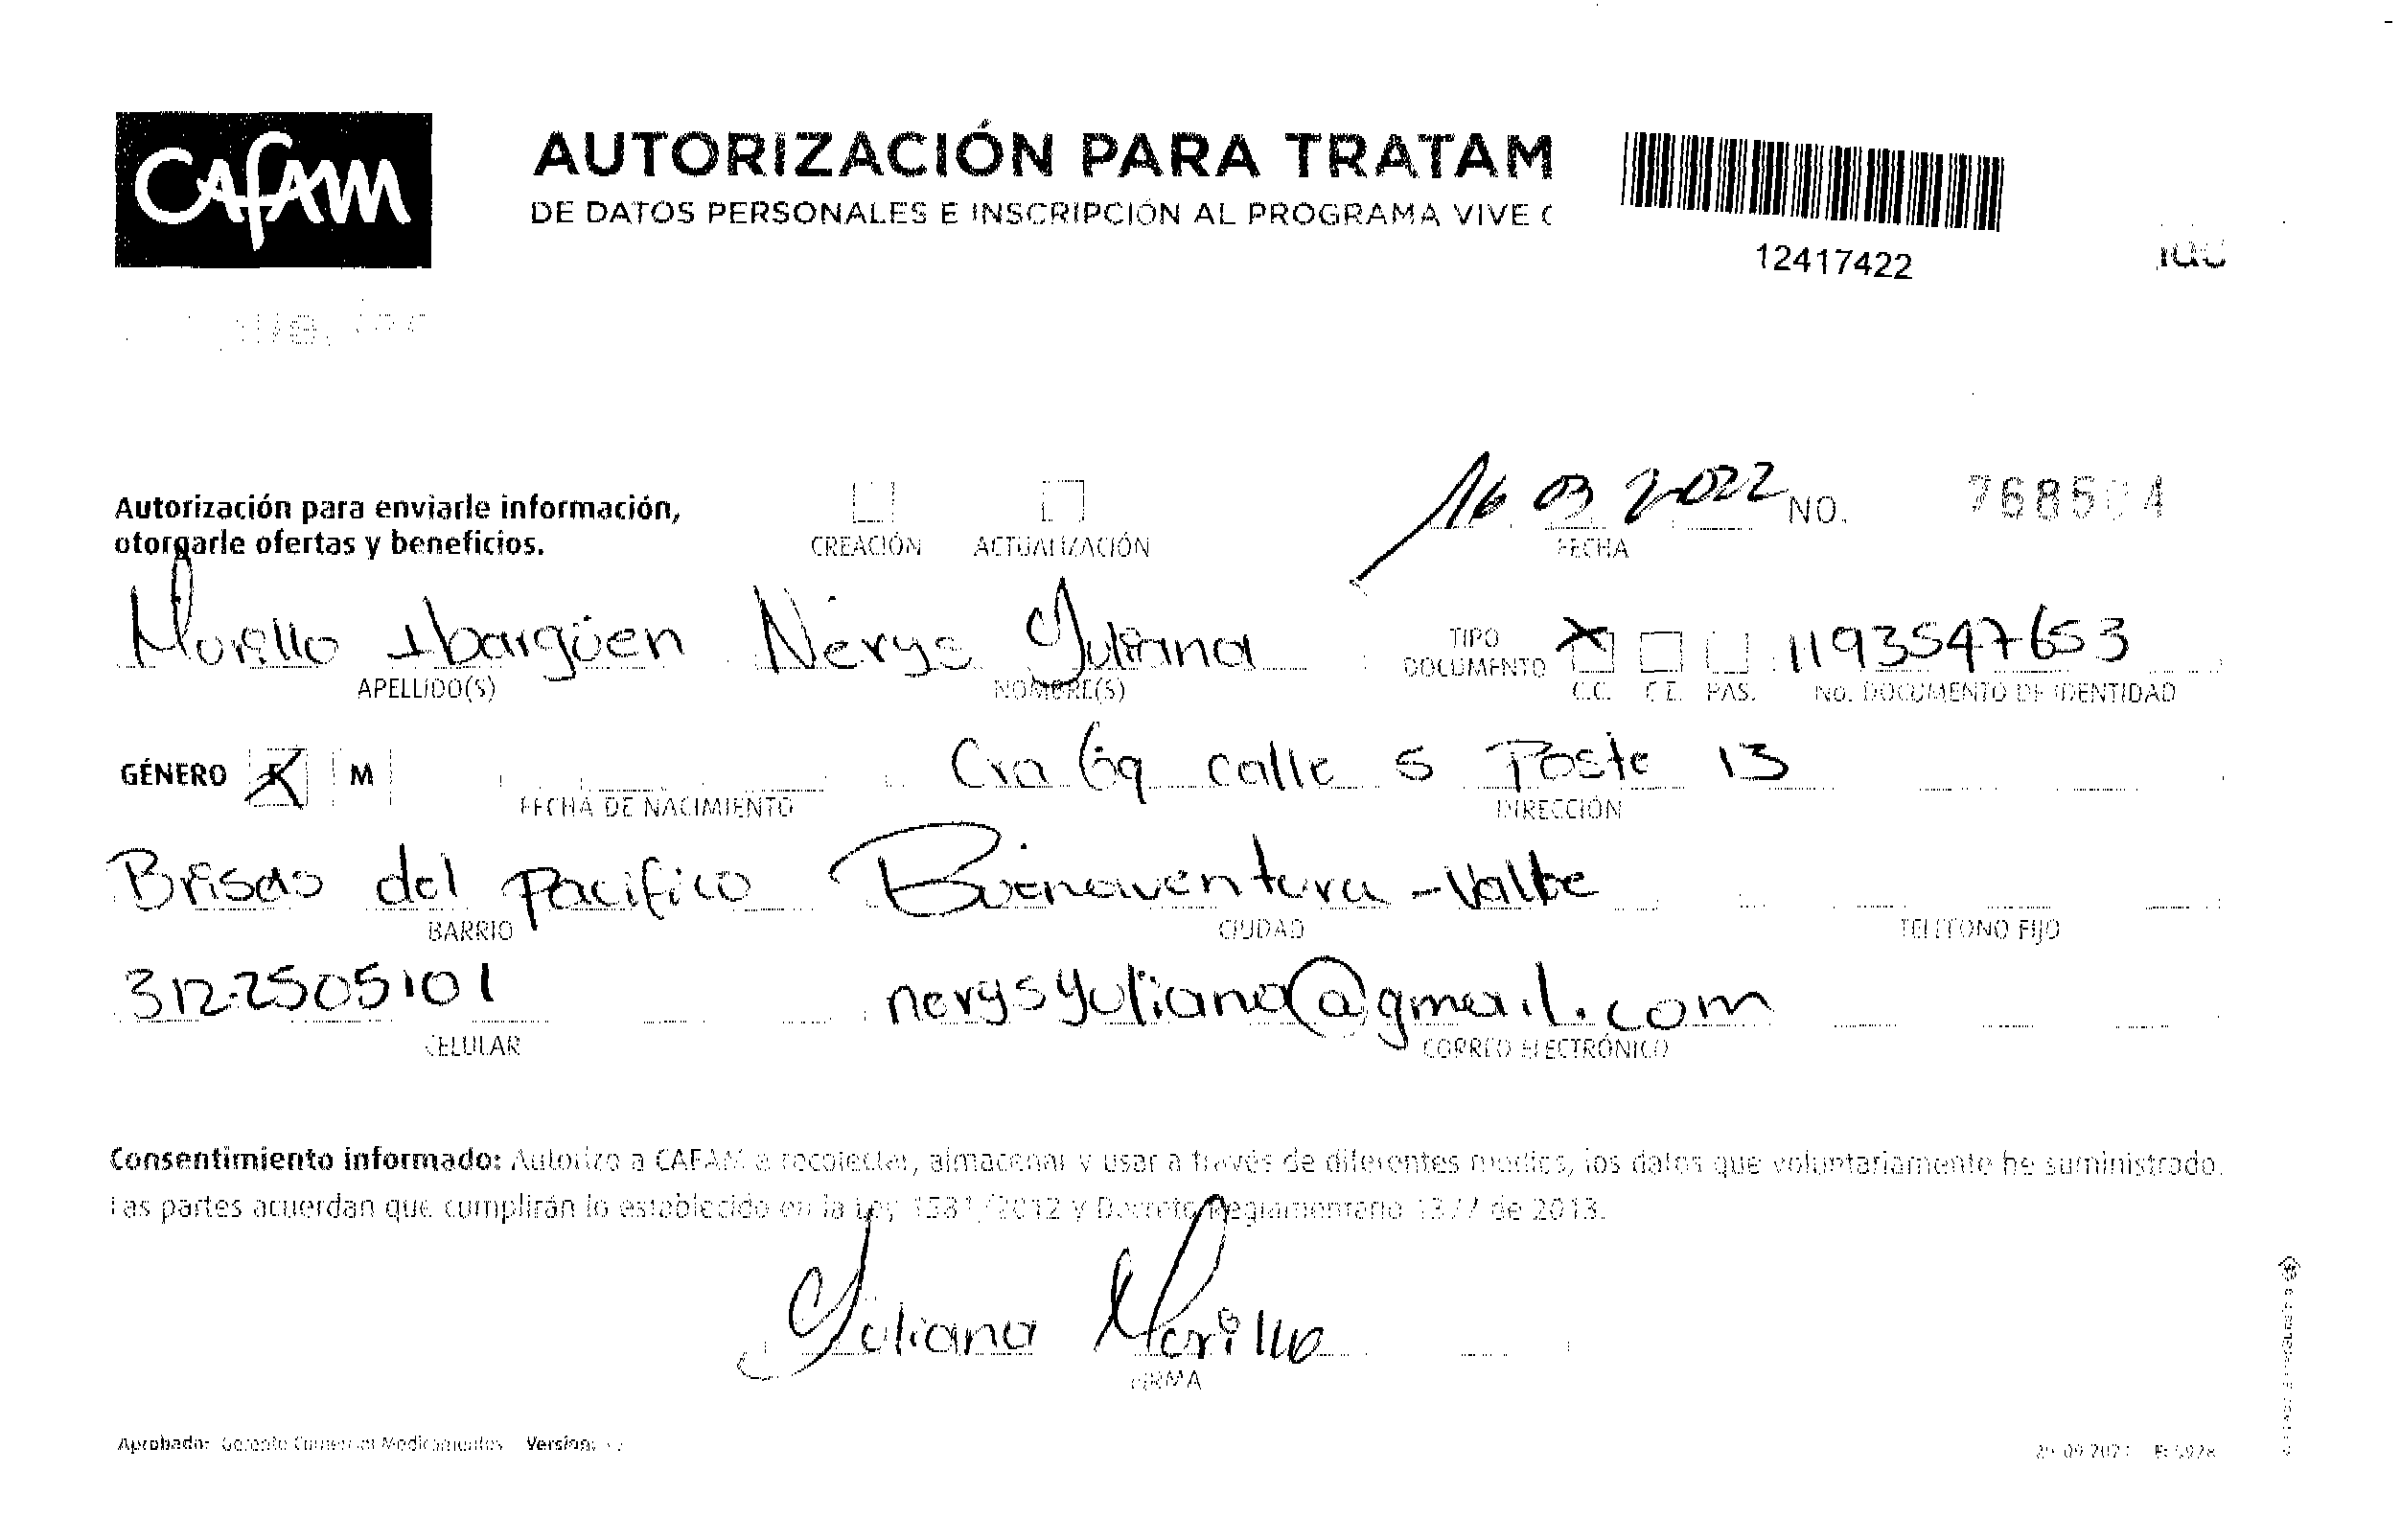 CAFAM
AUTORIZACIÓN PARA TRATAM
DE DATOS PERSONALES E INSCRIPCIÓN AL PROGRAMA VIVE C
12417422
Autorización para enviarle información,
otorgarle ofertas y beneficios.
CREACIÓN ACTUALIZACIÓN
16 03 2022 NO.
FECHA
Morillo Ibargüen Nerys Yuliana TIPO DOCUMENTO X 1193547653
APELLIDO(S) NOMBRE(S) C.C. C.E. PAS. No. DOCUMENTO DE IDENTIDAD
GÉNERO F M Cra 69 calle 5 Poste 13
FECHA DE NACIMIENTO DIRECCIÓN
Brisas del Pacifico Buenaventura - Valle
BARRIO CIUDAD TELÉFONO FIJO
312 2505101 nerysyuliana@gmail.com
CELULAR CORREO ELECTRÓNICO
Consentimiento informado: Autorizo a CAFAM a recolectar, almacenar y usar a través de diferentes medios, los datos que voluntariamente he suministrado.
Las partes acuerdan que cumplirán lo establecido en la Ley 1581/2012 y Decreto Reglamentario 1377 de 2013.
Yuliana Morillo
FIRMA
Aprobado: Gerente Comercial Medicamentos Version: